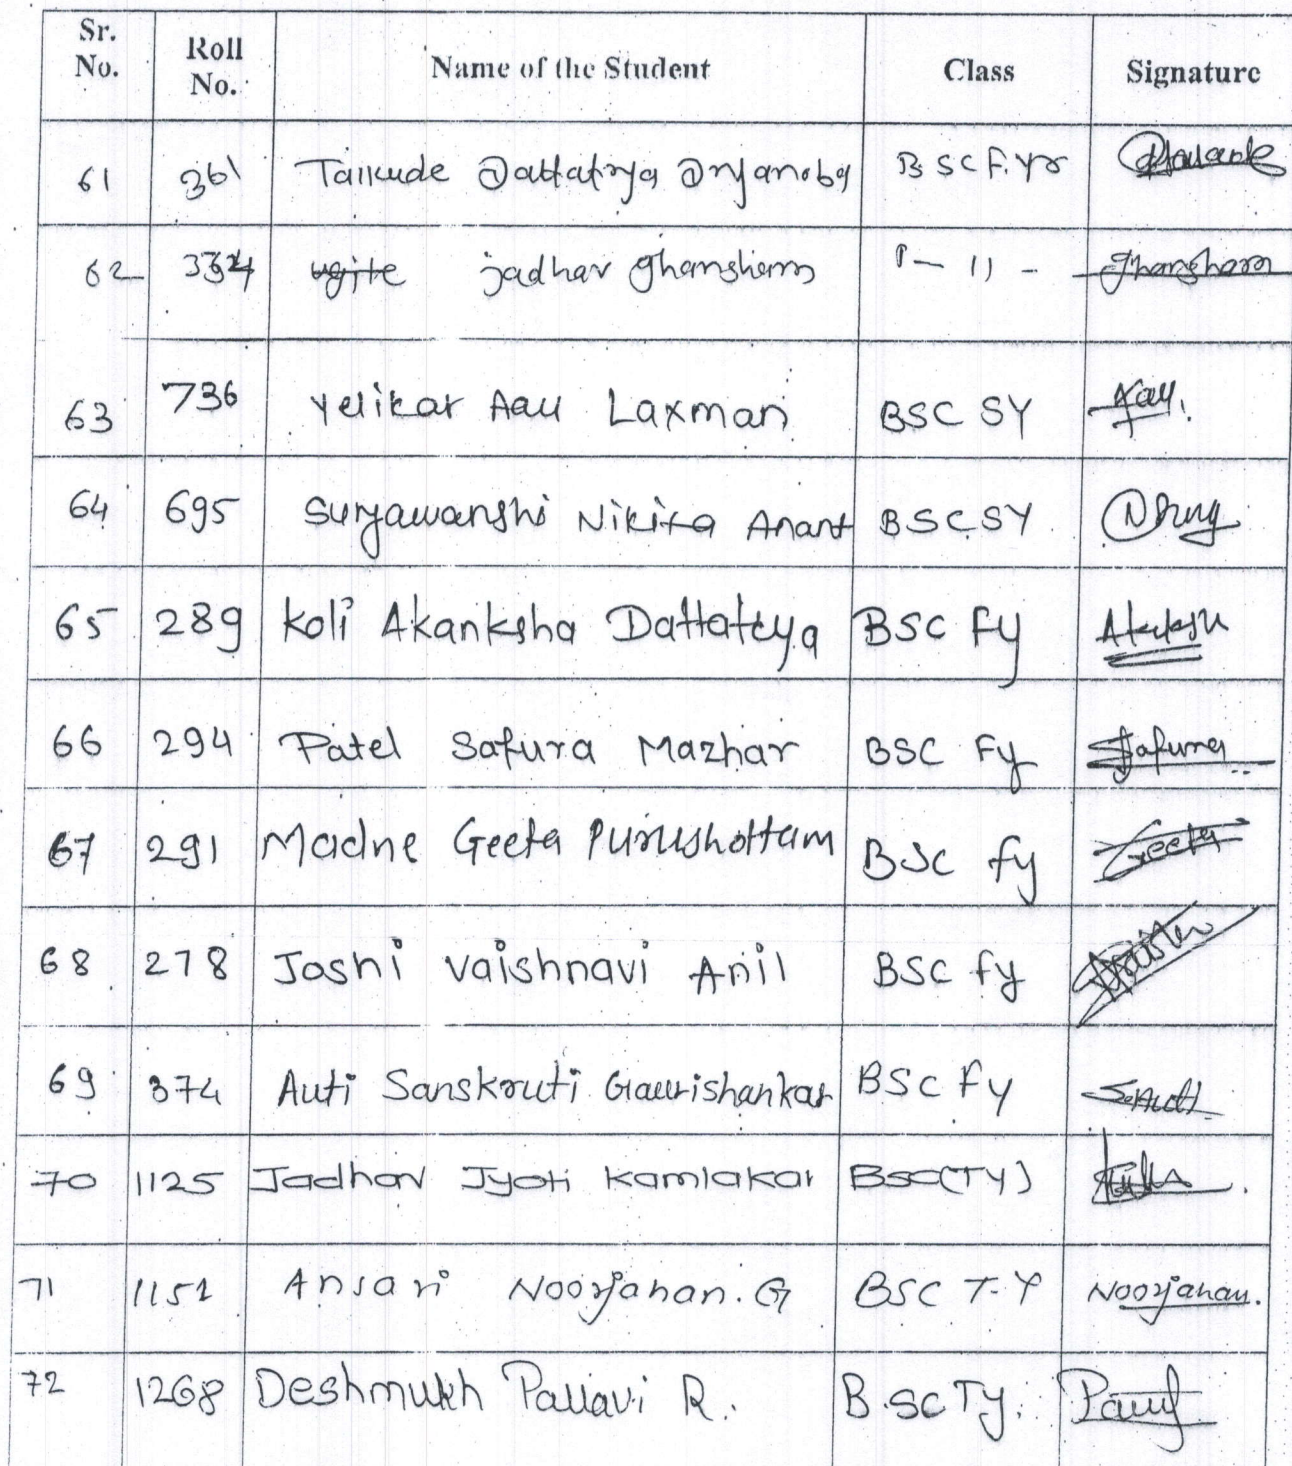 Sr. No. Roll No. Name of the Student Class Signature
61 361 Taikude Dattatrya Dnyanoba B.SC F.Yr
62 334 ugite jadhav ghansham I- 11 - ghansham
63 736 Yelikar Aau Laxman BSC SY Aau.
64 695 Suryawanshi Nikita Anant BSC SY
65 289 Koli Akanksha Dattatrya BSC Fy
66 294 Patel Safura Mazhar BSC Fy Safura
67 291 Madne Geeta Purushottam BSC fy Geeta
68 278 Joshi Vaishnavi Anil BSC fy
69 374 Auti Sanskruti Gaurishankar BSC Fy S.Auti
70 1125 Jadhav Jyoti Kamlakar BSC(TY)
71 1151 Ansari Noorjahan. G BSC T.Y Noorjahan.
72 1268 Deshmukh Pallavi R. B.SC Ty.